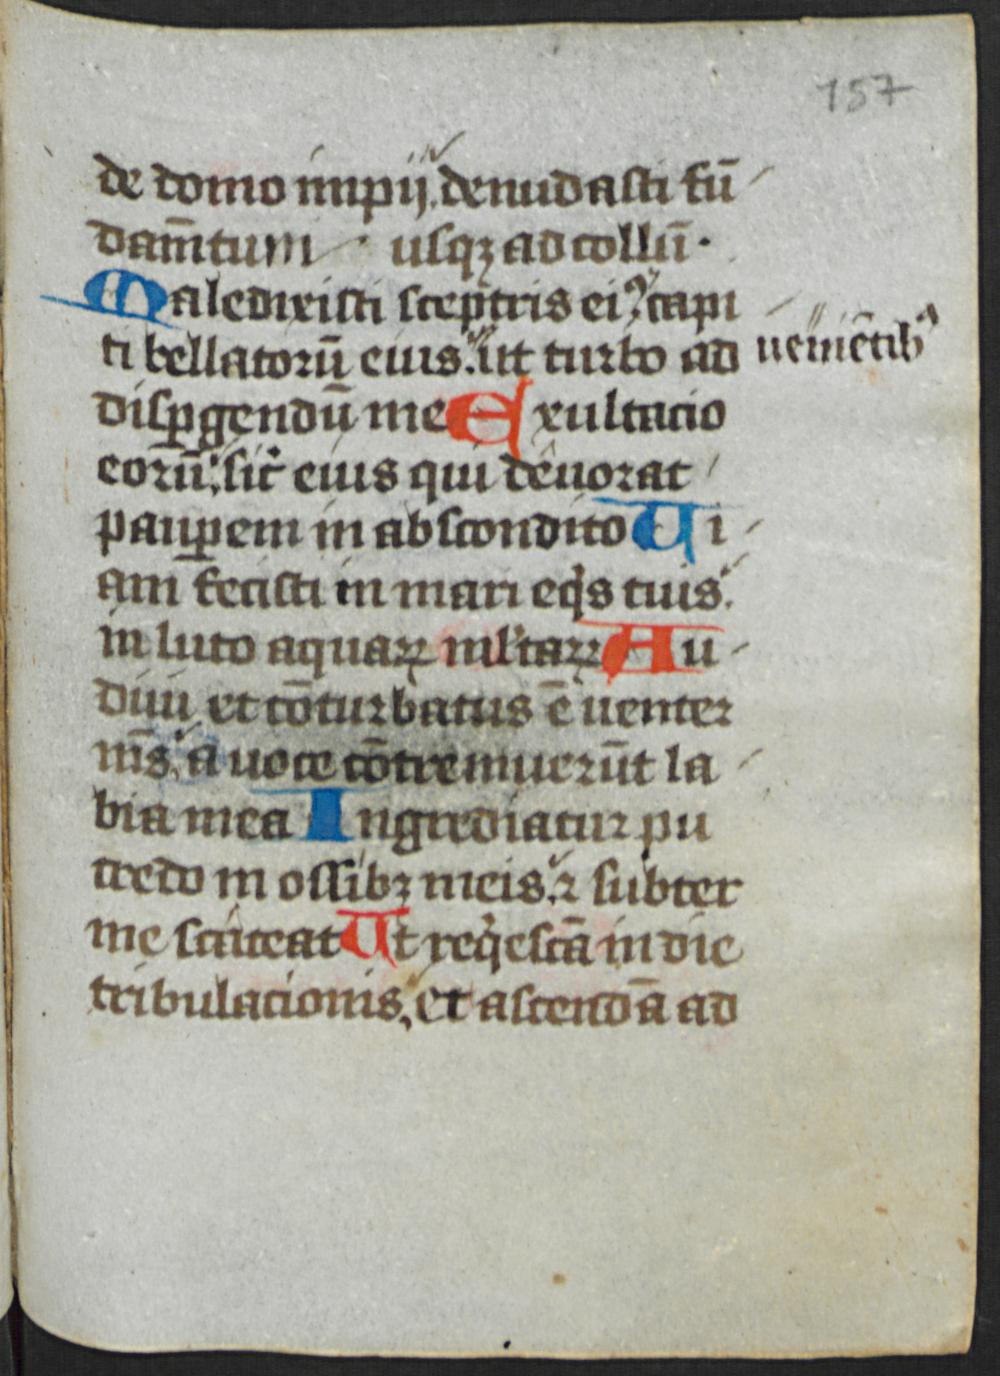 157
de domo impij. denudasti fū
dam̄tum usqꝫ ad collū.
Maledixisti sceptris eiꝰ capi
ti bellatorū eius. ut turbo ad ueniētibꝰ
disꝑgendū me Exultacio
eorū. sic̄ eius qui deuorat
pauꝑem in abscondito Ui
am fecisti in mari eqͥs tuis.
in luto aquaꝝ ml̓taꝝ Au
diui et cōturbatus ē uenter
m̄s. a uoce cōtremuerūt la
bia mea Ingrediatur pu
tredo in ossibꝫ meis. ⁊ subter
me scateat Ut reqͥescā in die
tribulacionis. et ascendā ad